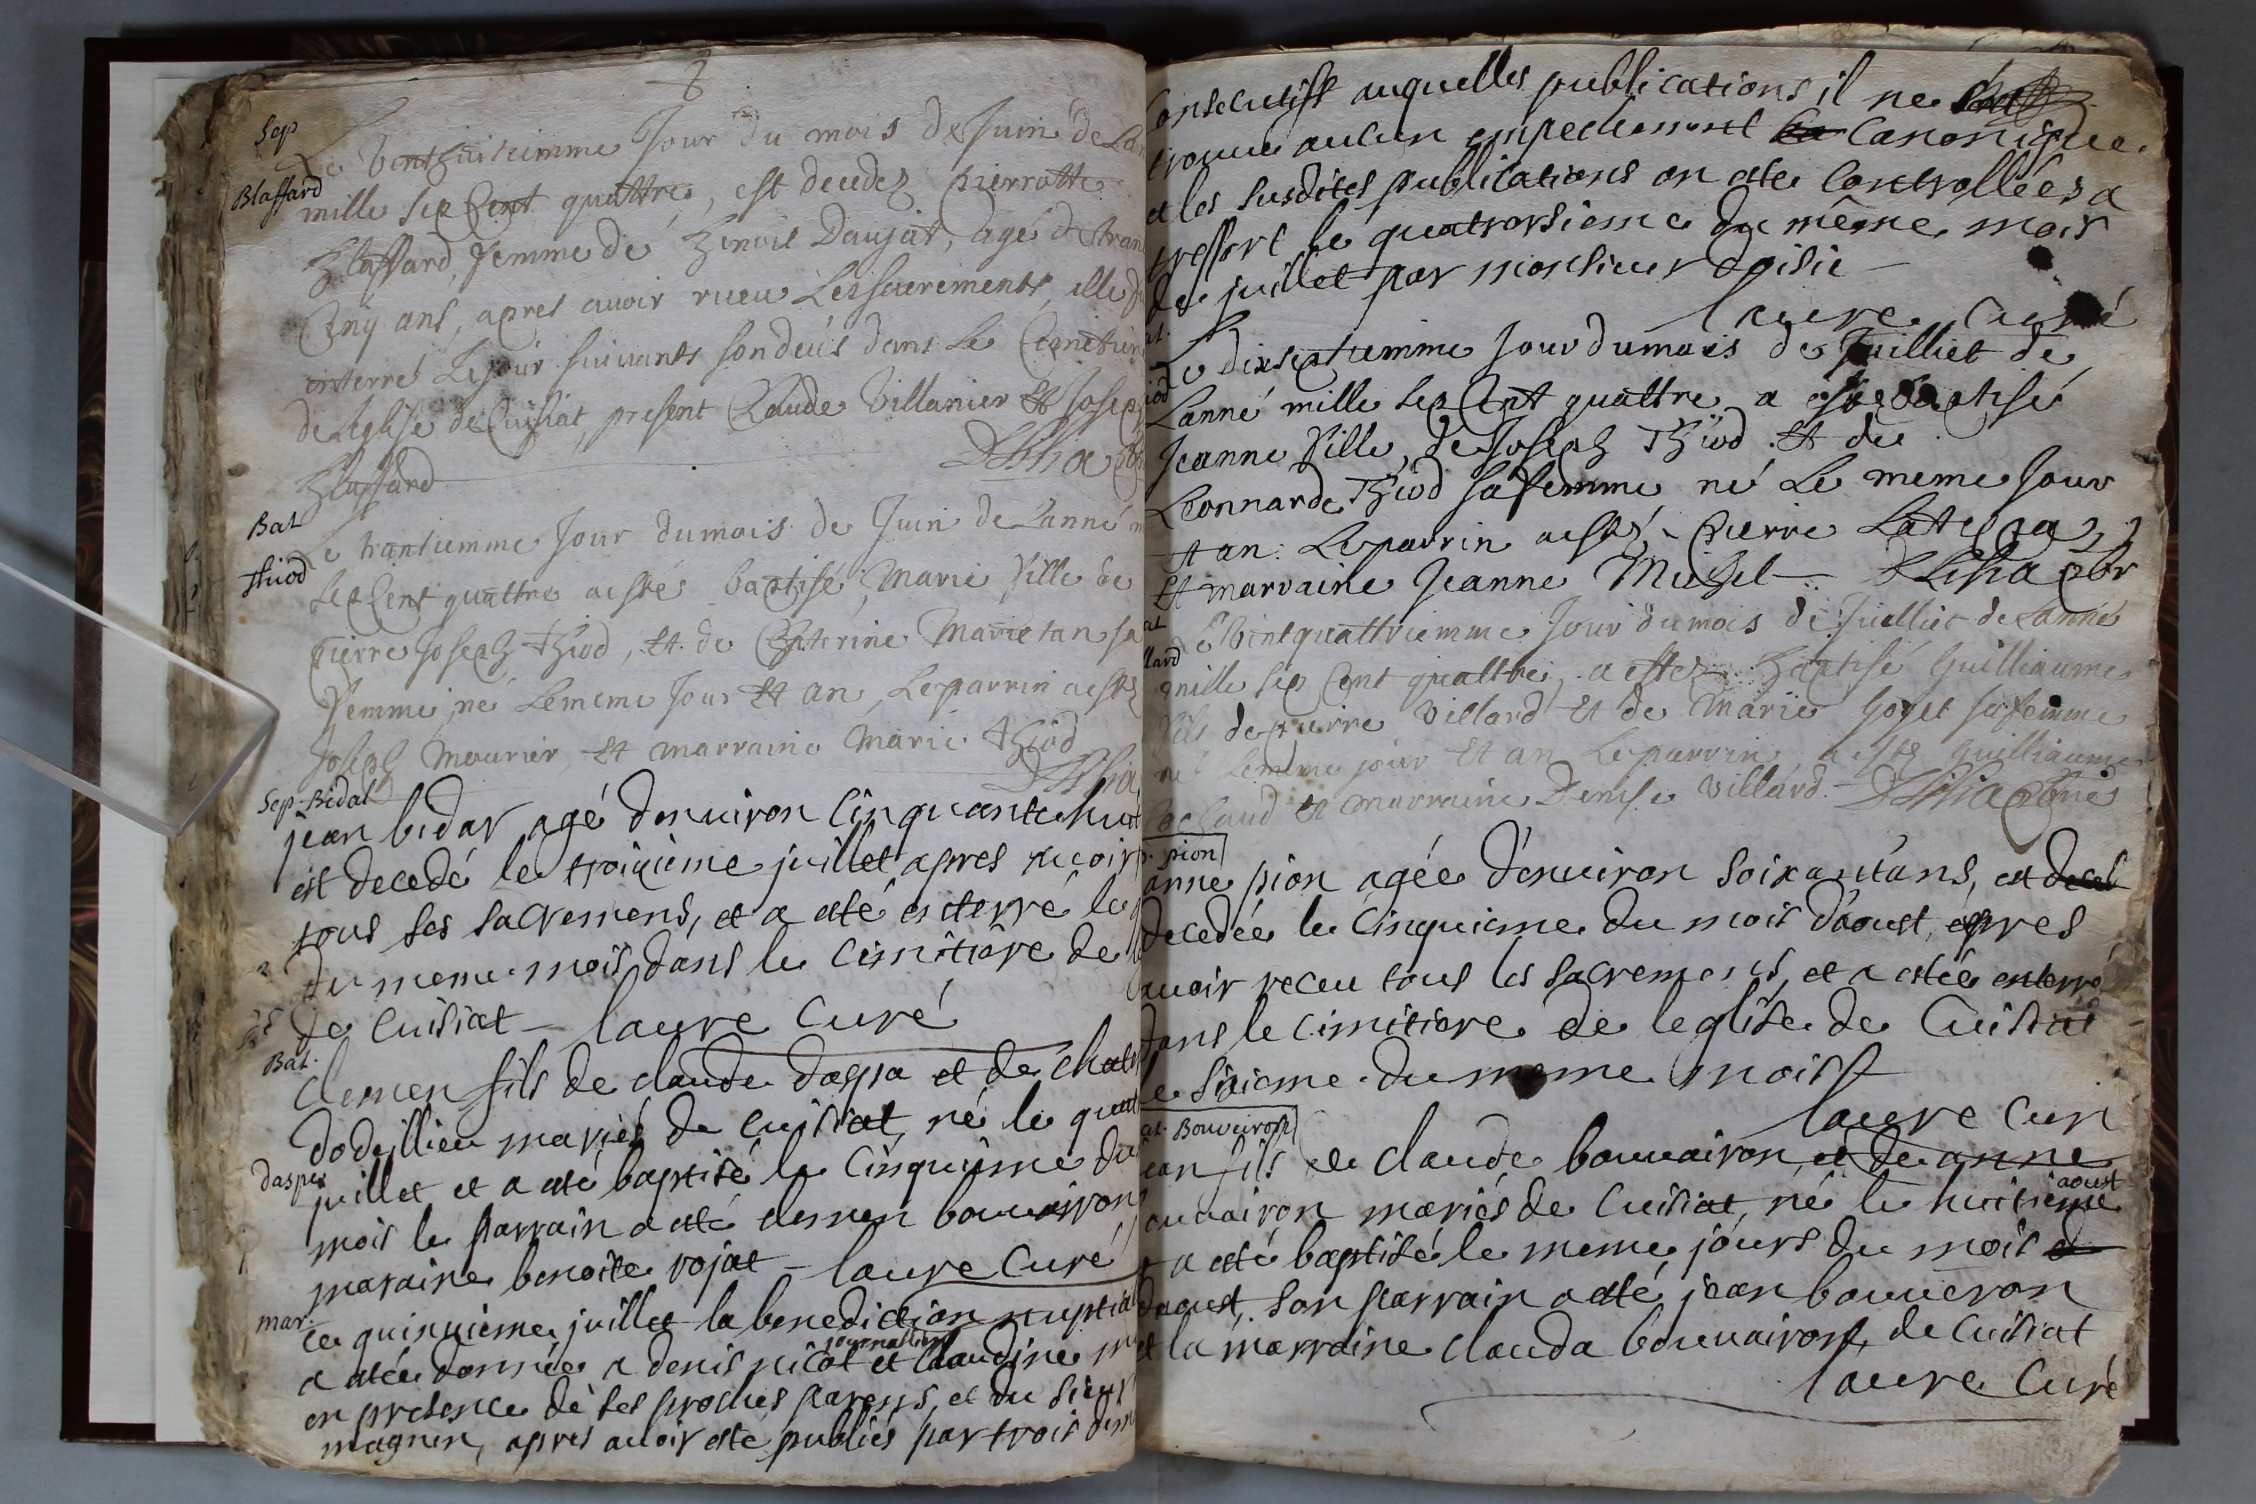 8
Sep
Blaffard
Le Vent huitiemme Jour du mois de Juin de Lan
mille sep Cent quattre, est decedez Pierratte
Blaffard, femme de Benoit Daujat, age de tran
Cinq ans, apres avoir rieu Les sacrements, elle
enterré Le jour suivants son deces dans Le Cemetier
de Leglise de Cuisiat, present Claude Villanier et Josep
Blaffard
Bat
Thiod
Le trantiemme Jour du mois de Juin de Lanné m
sep Cent quattre a estés baptisé, Marie fille de
Pierre Joseph Thiod, et de Chaterine Marietan sa
femme, né Le meme Jour et an, Le parrin a estes
Joseph Mourier, et marraine Marie Thiod
Sep. Bidal
jean bidar agé denuiron cinquante huit
est decedé le troixième juillet apres
tous ses sacremens, et a esté enterré le
du meme mois dans le cimitiére de
de Cuisiat - laure Curé
Bat.
Clemen fils de claude daspa et de
dodeillieu mariés de cuisiat, né le quat
daspa
juillet et a esté baptisé le cinquiyme du
mois le parrain a esté clemen bouuairon
maraine benoite rojat - laure Curé
mar.
ce quinuieme juillet la benediction nuptia
a estée donnée a denis nicot et Claudine
en presence de ses proches parens, et du sieur
magnin, apres auoir esté publiés par trois
consecutifs auquelles publications il ne
trouue aulcun empechement Canonique.
et les susdites publications on esté Controllées a
tressort le quatrorsieme du même mois
de juillet par monsieur doisie
laure curé
Le dixseptiemme Jour du mois de Juilliet de
Lanné mille sep Cent quattre a este baptisé
Jeanne fille, de Joseph Thiod et de
Leonnarde Thiod sa femme né Le meme Jour
et an. Le parrin a estés Pierre
et marraine Jeanne Michel
Le Vintquattriemme Jour du mois de Juilliet de Lanné
mille sep Cent quattre, a estez Baptisé Guilliaume
fils de Pierre Villard et de Marie Goyet sa femme
né Le meme jour et an Le parrin, a estez Guilliaume
et marraine Denise Villard
pion
anne pion agée d'enuiron soixant'ans, est
decedée le cinquieme du mois d'aoust, apres
auoir receu tous les sacremens, et a estée enterré
dans le cimitiere de leglise de Cuisiat
le sixieme du meme mois
laure Cur
Bouueiron
ean fils de claude bouuairon, et de anne
ouuairon mariés de Cuisiat, né le huitieme aoust
a esté baptisé le meme jours du mois
daoust, son parrain a esté jean bouueron
et la marraine clauda bouuairon, de Cuisiat
laure Curé